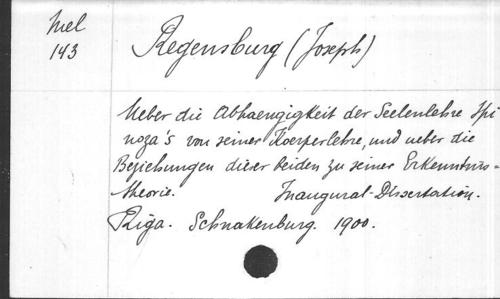 Mel
143
Regensburg (Joseph)
Ueber die Abhaengigkeit der Seelenlehre Spi
noza's von seiner Koerperlehre, und ueber die
Beziehungen dieser beiden zu seiner Erkenntniss-
theorie. Inaugural-Dissertation.
Riga. Schnakenburg. 1900.